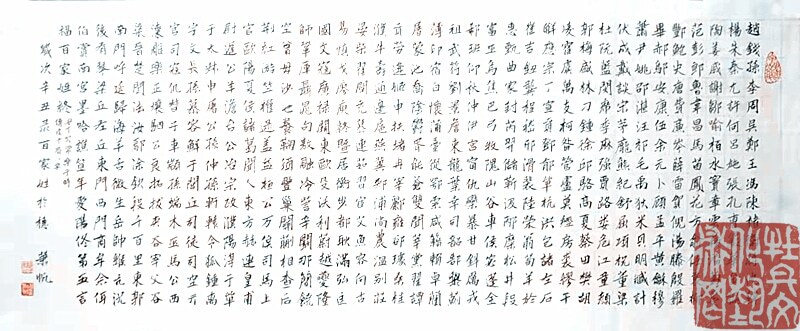 趙錢孫李周吳鄭王馮陳
楊朱秦尤許何呂施張孔
陶姜戚謝鄒喻柏水竇章雲
范彭郎魯韋昌馬苗鳳花方
酆鮑史唐費廉岑薛雷賀倪湯滕殷羅
畢郝鄔安康伍余元卜顧孟平黃穌穆
蕭尹姚邵湛汪祁毛禹狄米貝明臧計
伏成戴談宋茅龐熊紀舒屈項祝董梁
杜阮藍閔席季麻強賈路婁危江童顏
郭梅盛林刁鍾徐邱駱高夏蔡田樊胡
凌霍虞萬支柯昝管盧莫經房裘繆干
解應宗丁宣賁鄧郁單杭洪包諸左石
崔吉鈕龔程嵇邢滑裴陸榮翁荀羊於
惠甄曲家封芮羿儲靳汲邴糜松井段
富巫烏焦巴弓牧隗山谷車侯宓蓬全
郗班仰秋仲伊宮甯仇欒暴甘鈄厲戎
祖武符劉景詹束龍葉幸司韶郜黎薊
薄印宿白懷蒲邰從鄂索咸籍賴卓藺
屠蒙池喬陰鬱胥能蒼雙聞莘黨翟譚
貢勞逄姬申扶堵冉宰酈雍卻璩桑桂
濮牛壽通邊扈燕冀郟浦尚農溫別莊
晏柴瞿閻充慕連茹習宦艾魚容向古
易慎戈廖庾終暨居衡步都耿滿弘匡
國文寇廣祿闕東歐殳沃利蔚越夔隆
師鞏厙聶晁勾敖融冷訾辛闞那簡饒
空曾毋沙乜養鞠須豐巢關蒯相查后
荊紅游竺權逯蓋益桓公万俟司馬上
官歐陽夏侯諸葛聞人東方赫連皇甫
尉遲公羊澹台公冶宗政濮陽淳于單
于太叔申屠公孫仲孫軒轅令狐鍾離
宇文長孫慕容鮮于閭丘司徒司空亓
官司寇仉督子車顓孫端木巫馬公西
漆雕樂正壤駟公良拓跋夾谷宰父谷
梁晉楚閆法汝鄢涂欽段干百里東郭
南門呼延歸海羊舌微生岳帥緱亢況
後有琴梁丘左丘東門西門商牟佘佴
伯賞南宮墨哈譙笪年愛陽佟第五言
福百家姓終
歲次辛丑录百家姓於穗